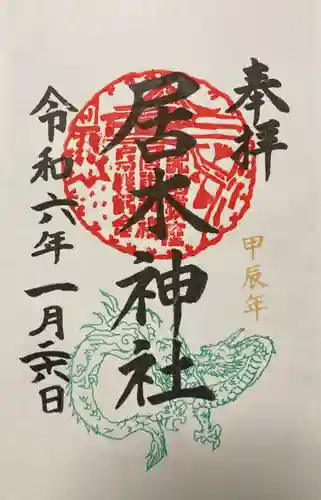 奉拝
甲辰年
居木神社
令和六年一月二六日